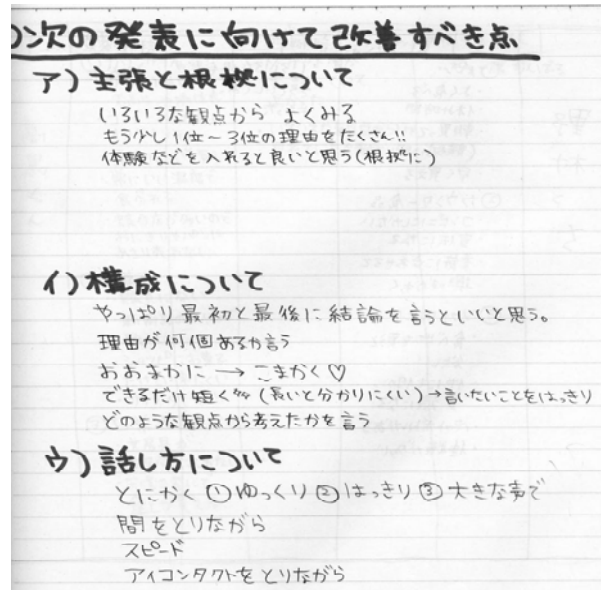 )次の発表に向けて改善すべき点
ア)主張と根拠について
いろいろな観点から よくみる
もう少し1位～3位の理由をたくさん!!
体験などを入れると良いと思う(根拠に)
イ)構成について
やっぱり最初と最後に結論を言うといいと思う。
理由が何個あるか言う
おおまかに→こまかく♡
できるだけ短く(長いと分かりにくい)→言いたいことをはっきり
どのような観点から考えたかを言う
ウ)話し方について
とにかく①ゆっくり②はっきり③大きな声で
間をとりながら
スピード
アイコンタクトをとりながら